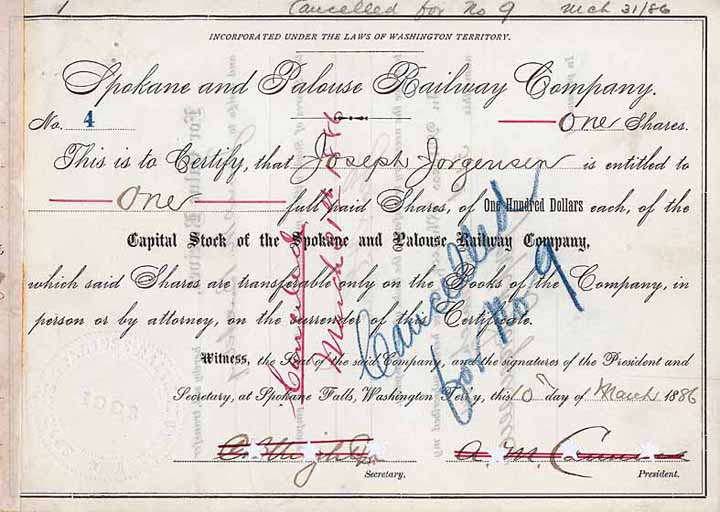 1 Cancelled for No 9 Mch 31/86
INCORPORATED UNDER THE LAWS OF WASHINGTON TERRITORY.
Spokane and Palouse Railway Company.
No. 4 One Shares.
This is to Certify, that Joseph Jorgensen is entitled to
One full paid Shares, of One Hundred Dollars each, of the
Capital Stock of the Spokane and Palouse Railway Company,
which said Shares are transferable only on the Books of the Company, in
person or by attorney, on the surrender of this Certificate.
Witness, the Seal of the said Company, and the signatures of the President and
Secretary, at Spokane Falls, Washington Ter'y, this day of March 1886
A. M.
Secretary. President.
Canceled
March 31st 1886
Cancelled
for No 9